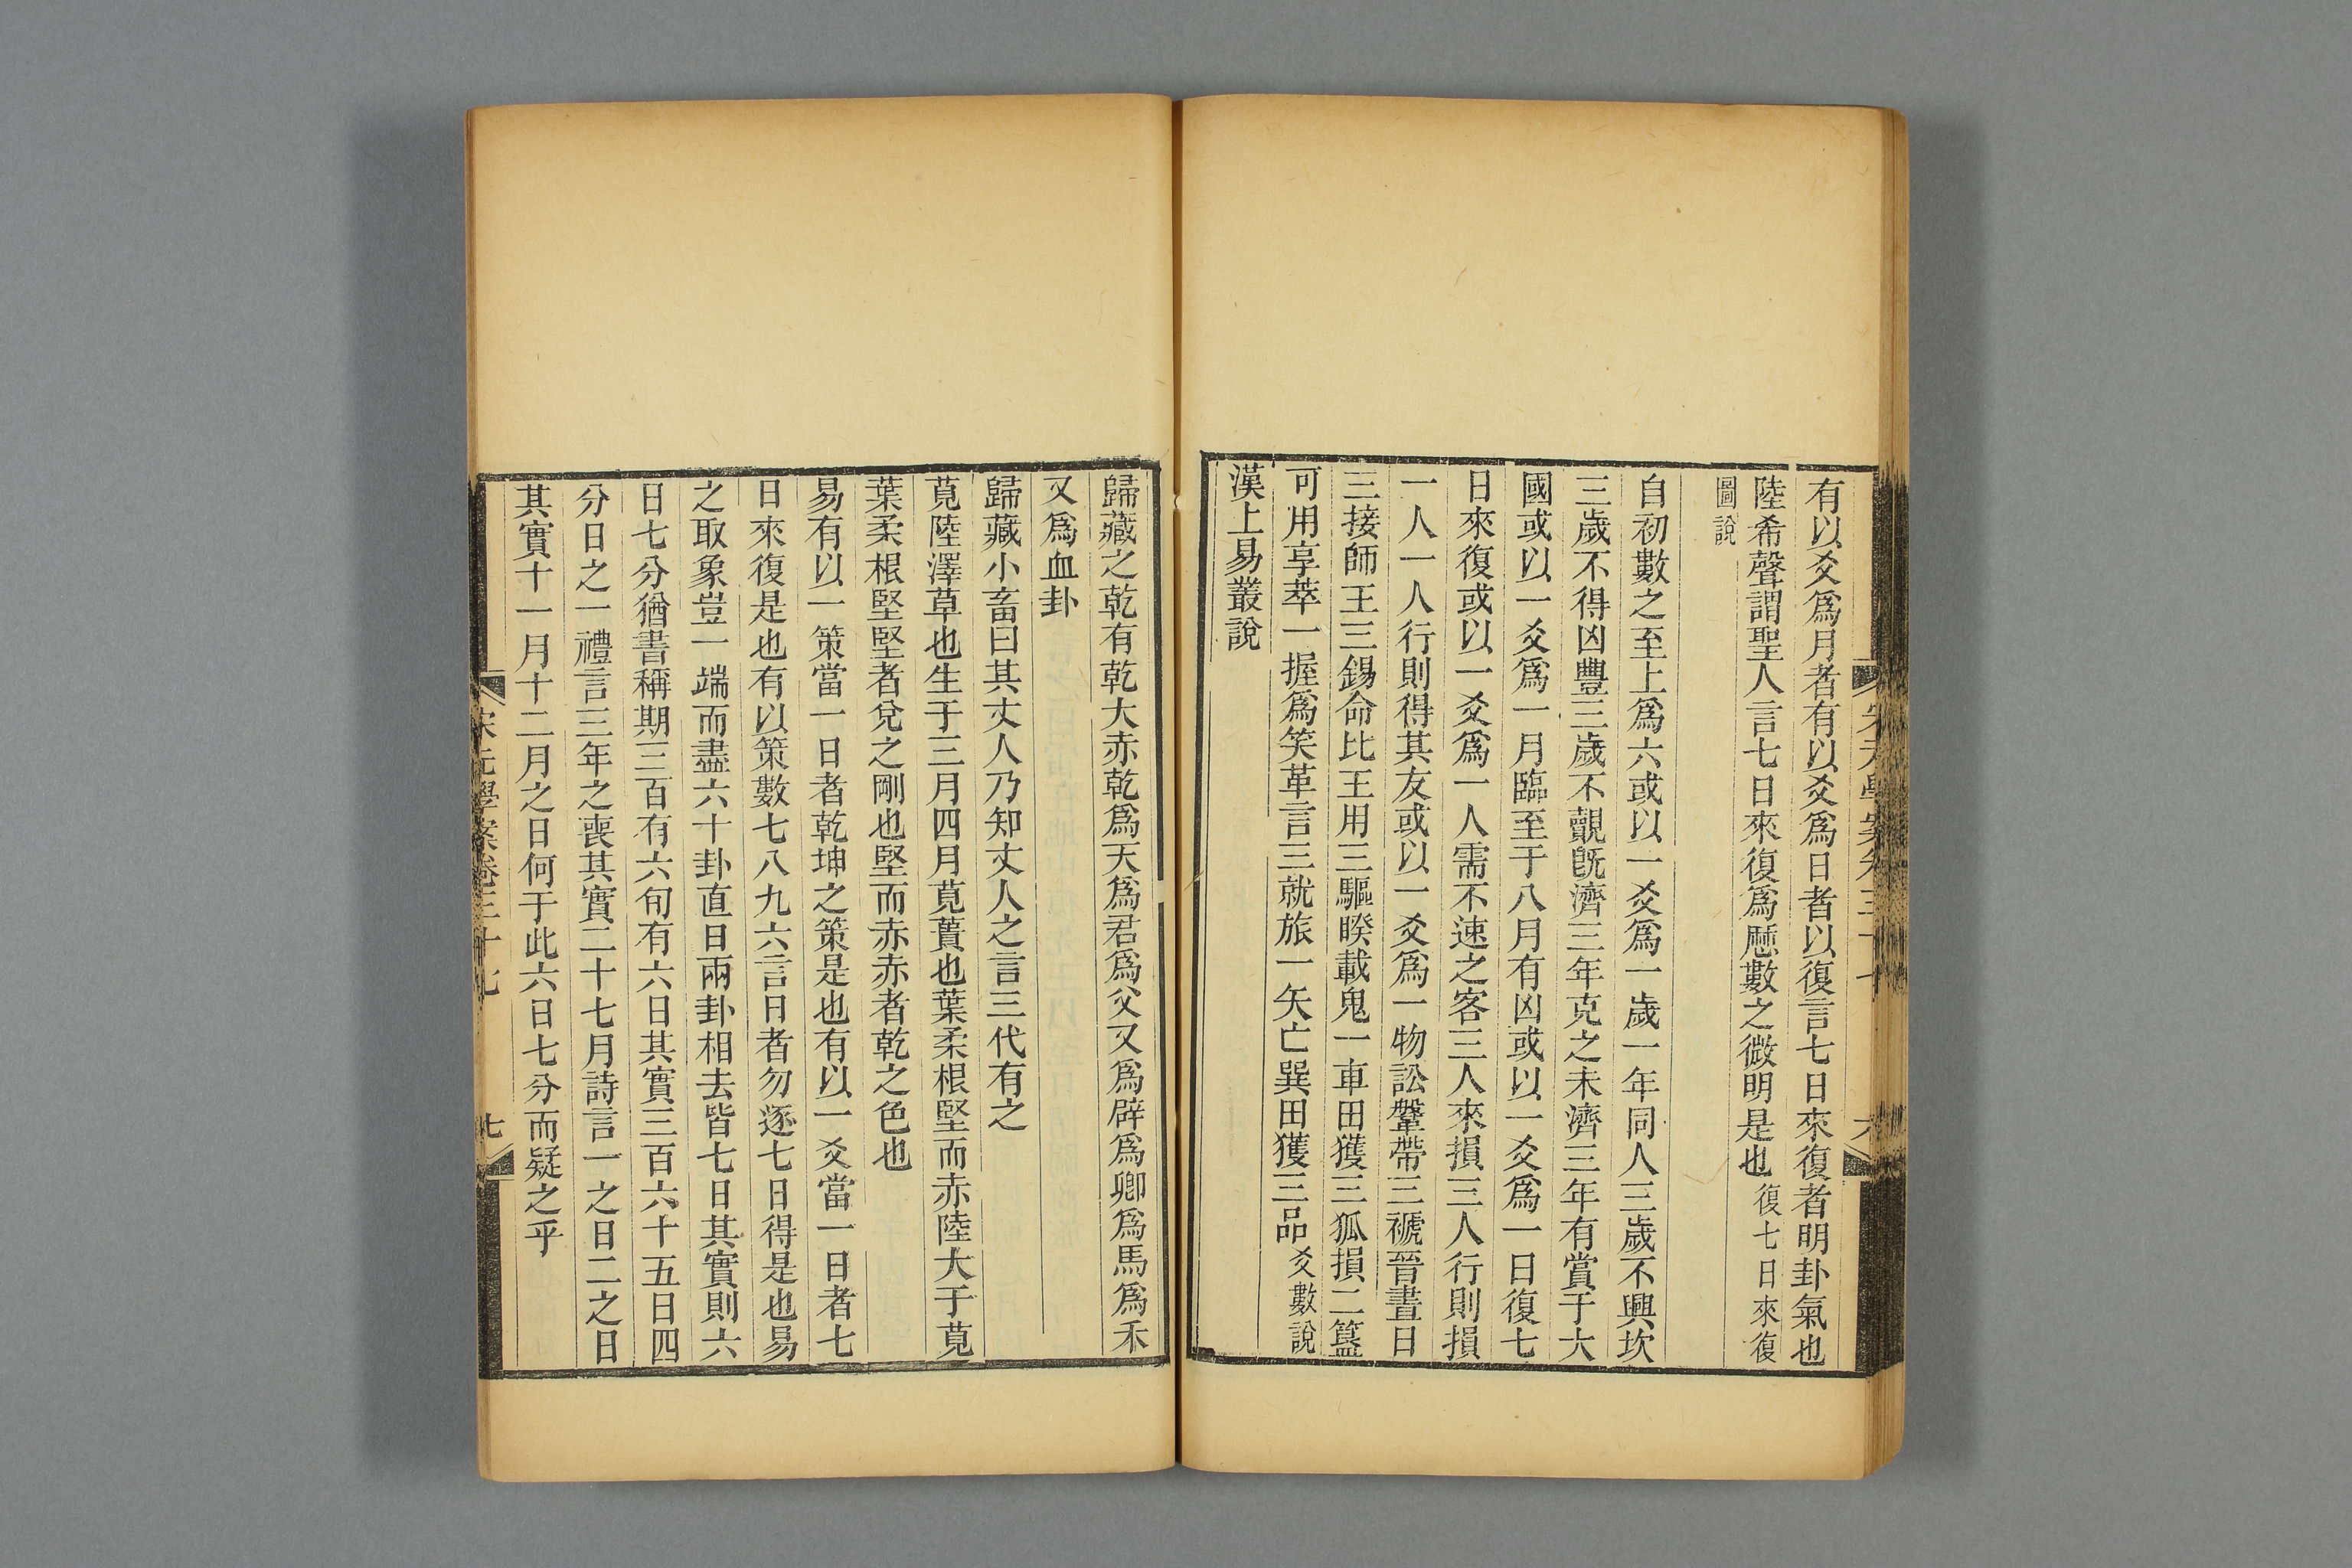 有以爻爲月者有以爻爲日者以復言七日來復者明卦氣也
陸希聲謂聖人言七日來復爲厯數之微明是也復七日來復
圖說
自初數之至上爲六或以一爻爲一歲一年同人三歲不興坎
三歲不得凶豐三歲不覿旣濟三年克之未濟三年有賞于大
國或以一爻爲一月臨至于八月有凶或以一爻爲一日復七
日來復或以一爻爲一人需不速之客三人來損三人行則損
一人一人行則得其友或以一爻爲一物訟鞶帶三褫晉晝日
三接師王三錫命比王用三驅睽載鬼一車田獲三狐損二簋
可用享萃一握爲笑革言三就旅一矢亡巽田獲三品爻數說
漢上易叢說
歸藏之乾有乾大赤乾爲天爲君爲父又爲辟爲卿爲馬爲禾
又爲血卦
歸藏小畜曰其丈人乃知丈人之言三代有之
莧陸澤草也生于三月四月莧蕢也葉柔根堅而赤陸大于莧
葉柔根堅堅者兌之剛也堅而赤赤者乾之色也
易有以一策當一日者乾坤之策是也有以一爻當一日者七
日來復是也有以策數七八九六言日者勿逐七日得是也易
之取象豈一端而盡六十卦直日兩卦相去皆七日其實則六
日七分猶書稱期三百有六旬有六日其實三百六十五日四
分日之一禮言三年之喪其實二十七月詩言一之日二之日
其實十一月十二月之日何于此六日七分而疑之乎
宋元學案卷三十七
七